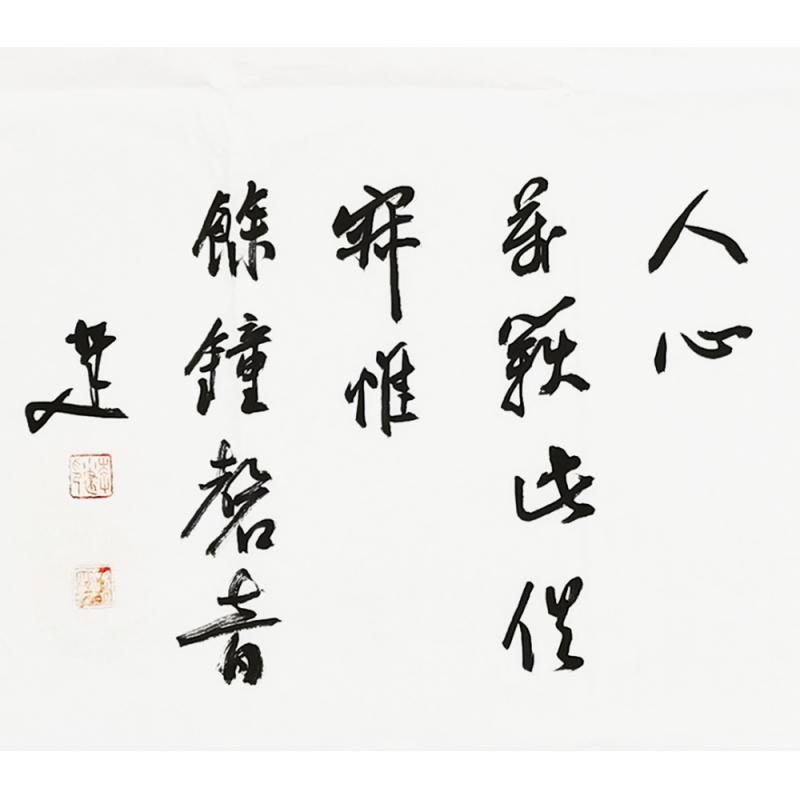 人心
萬籟此俱
寂惟
餘鐘磬音